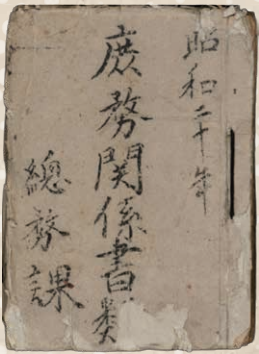 昭和二十年
庶務関係書類
總務課